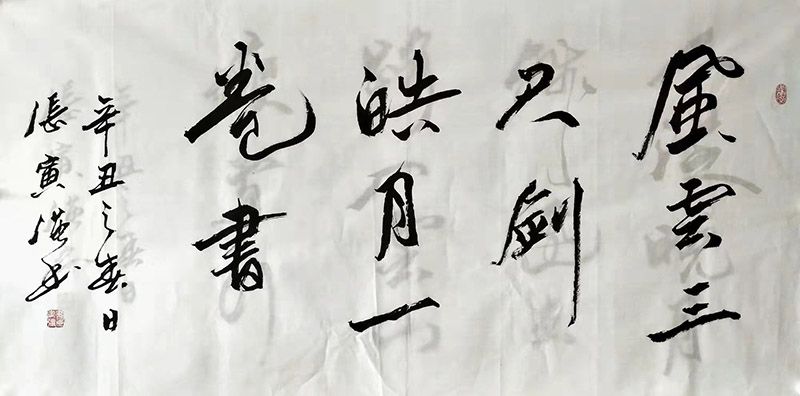 風雲三
尺劍
皓月一
卷書
辛丑之春日
張寅